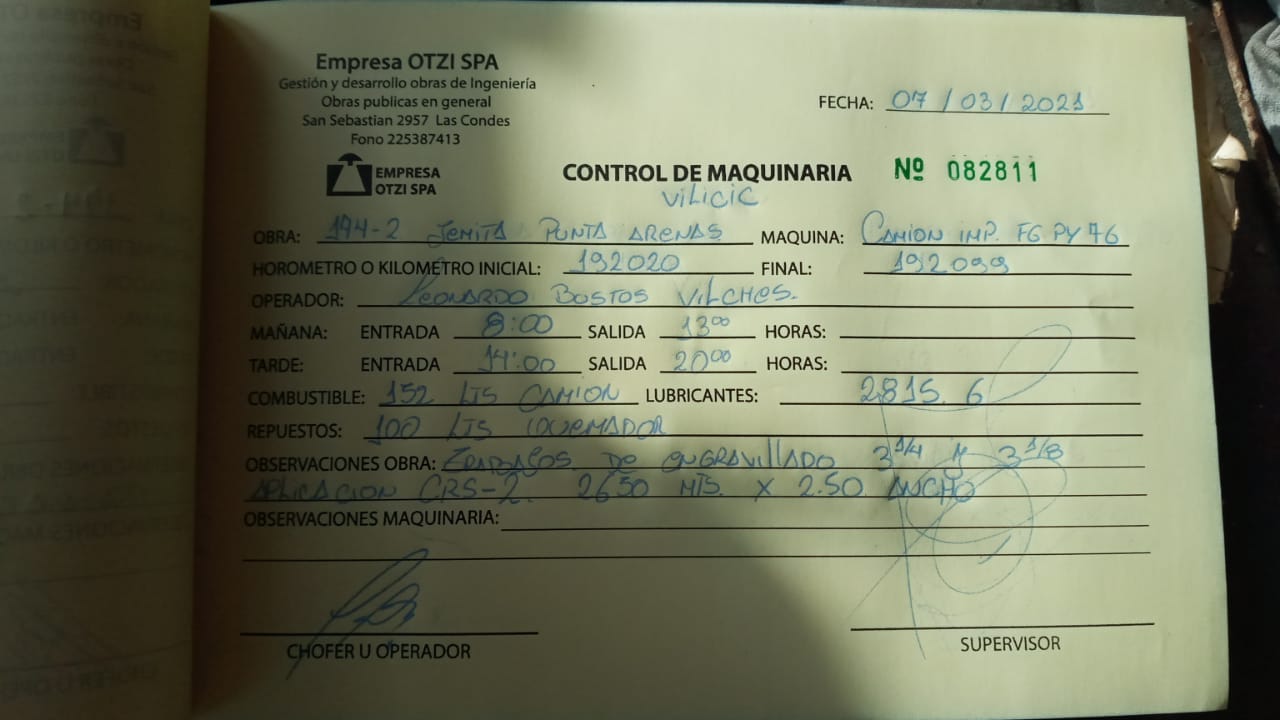 Empresa OTZI SPA
Gestión y desarrollo obras de Ingeniería
Obras publicas en general
San Sebastian 2957 Las Condes
Fono 225387413
FECHA: 07 / 03 / 2021
EMPRESA
OTZI SPA
CONTROL DE MAQUINARIA Nº 082811
VILICIC
OBRA: 194-2 JEMITA PUNTA ARENAS MAQUINA: CAMION IMP. FG PY 76
HOROMETRO O KILOMETRO INICIAL: 192020 FINAL: 192099
OPERADOR: LEONARDO BUSTOS VILCHES.
MAÑANA: ENTRADA 8:00 SALIDA 13⁰⁰ HORAS:
TARDE: ENTRADA 14:00 SALIDA 20⁰⁰ HORAS:
COMBUSTIBLE: 152 LTS CAMION LUBRICANTES: 2815.6
REPUESTOS: 100 LTS QUEMADOR
OBSERVACIONES OBRA: TRABAJOS DE ENGRAVILLADO 3 1/4 Y 3 1/8
APLICACION CRS-2. 2650 MTS. X 2.50 ANCHO
OBSERVACIONES MAQUINARIA:
CHOFER U OPERADOR
SUPERVISOR